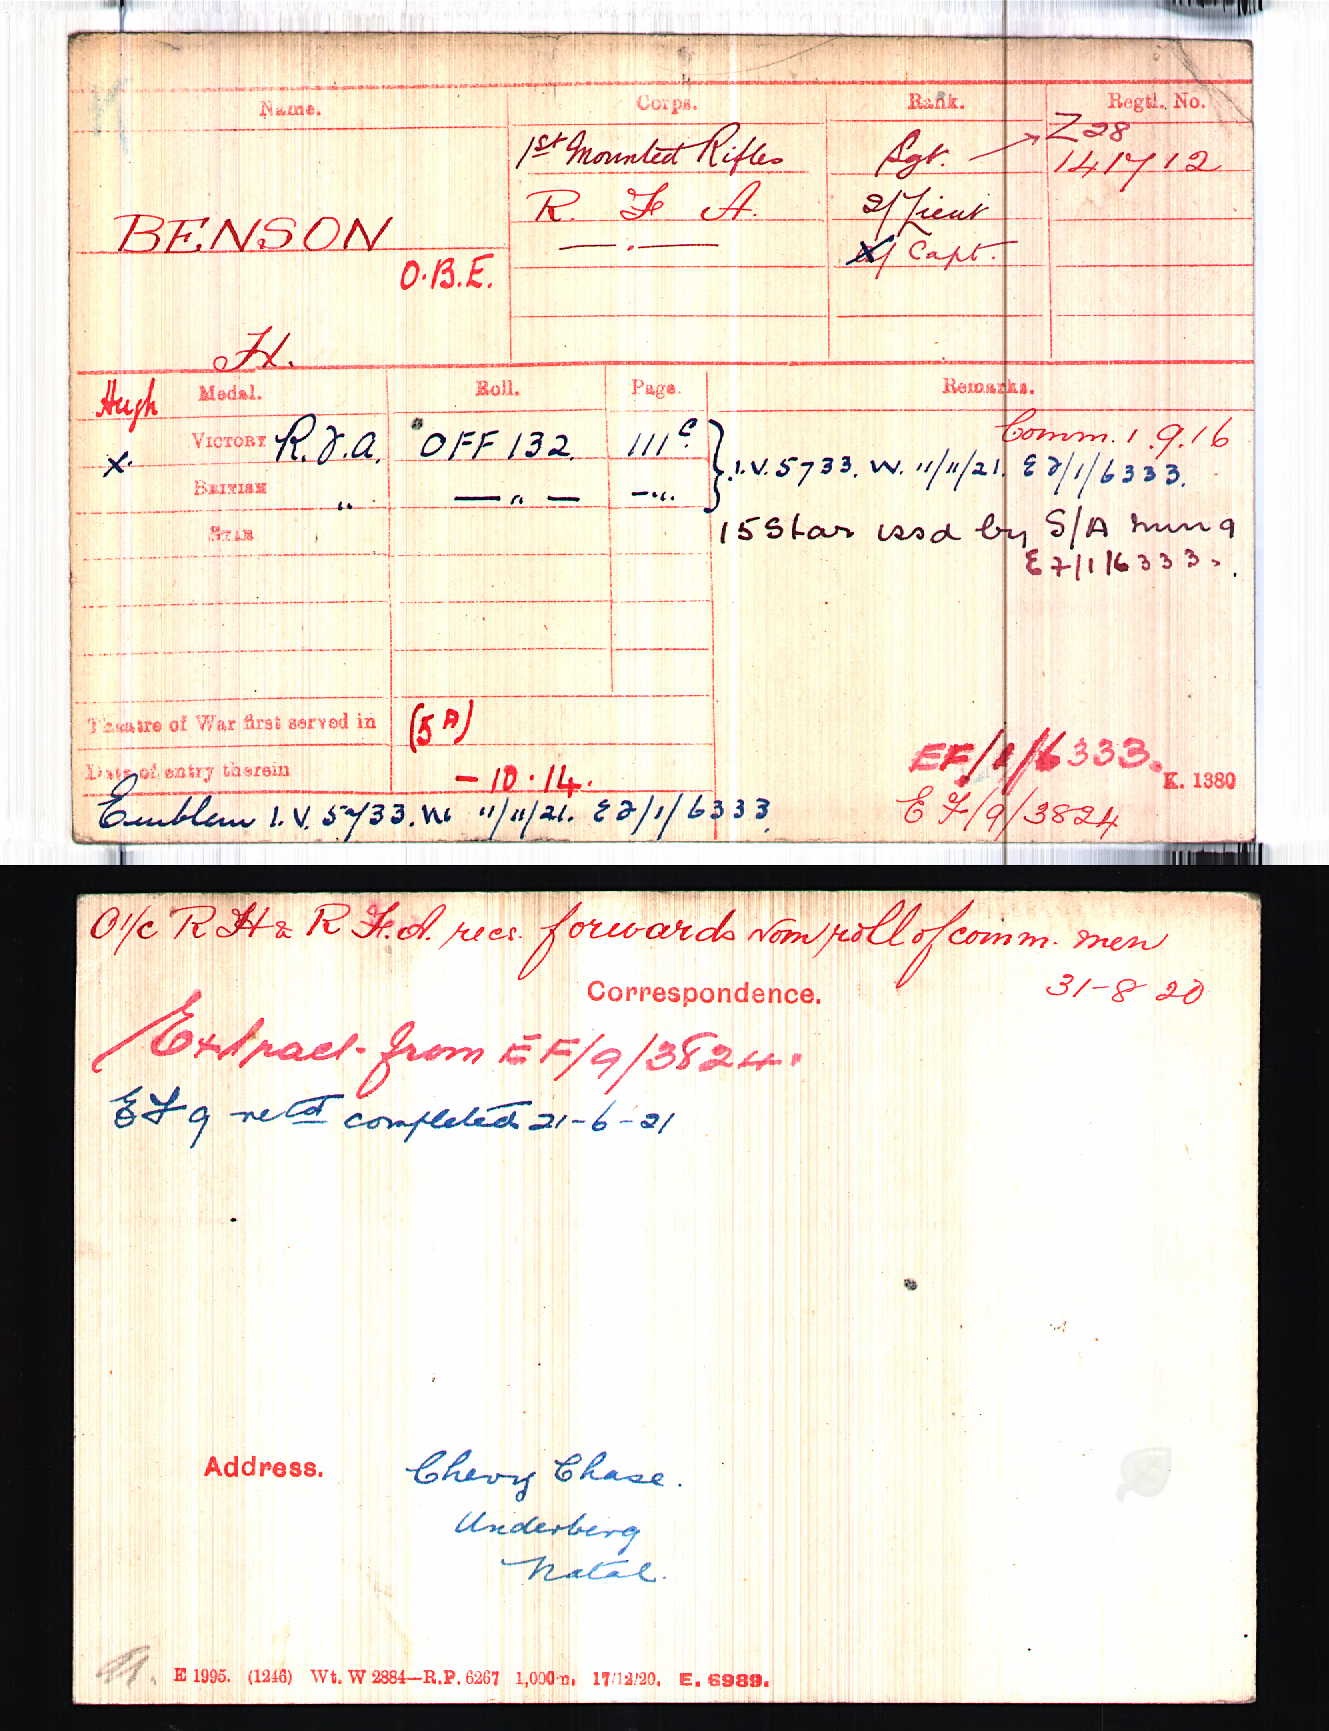 Name. Corps. Rank. Regtl. No.
1st Mounted Rifles Sgt. Z28
141712
BENSON R. F. A. 2/Lieut
O.B.E. Capt.
H.
Hugh Medal. Roll. Page. Remarks.
Comm. 1.9.16
X VICTORY R.F.A. OFF 132. 111C.
I.V. 5733. W. 11/11/21. EF/1/6333.
BRITISH " — " — — "
STAR 15 Star issd by S/A
EF/1/6333.
Theatre of War first served in (5A)
Date of entry therein - 10.14.
EF/1/6333.
K. 1380
Emblem I.V. 5733. W. 11/11/21. EF/1/6333.
EF/9/3824
O i/c RH & RFA. recs. forwards nom roll of comm. men
Correspondence. 31-8-20
Extract from EF/9/3824.
EF9 retd completed 21-6-21
Address. Chevy Chase.
Underberg
Natal.
E 1995. (1246) Wt. W 2884—R.P. 6267 1,000m. 17/12/20. E. 6989.